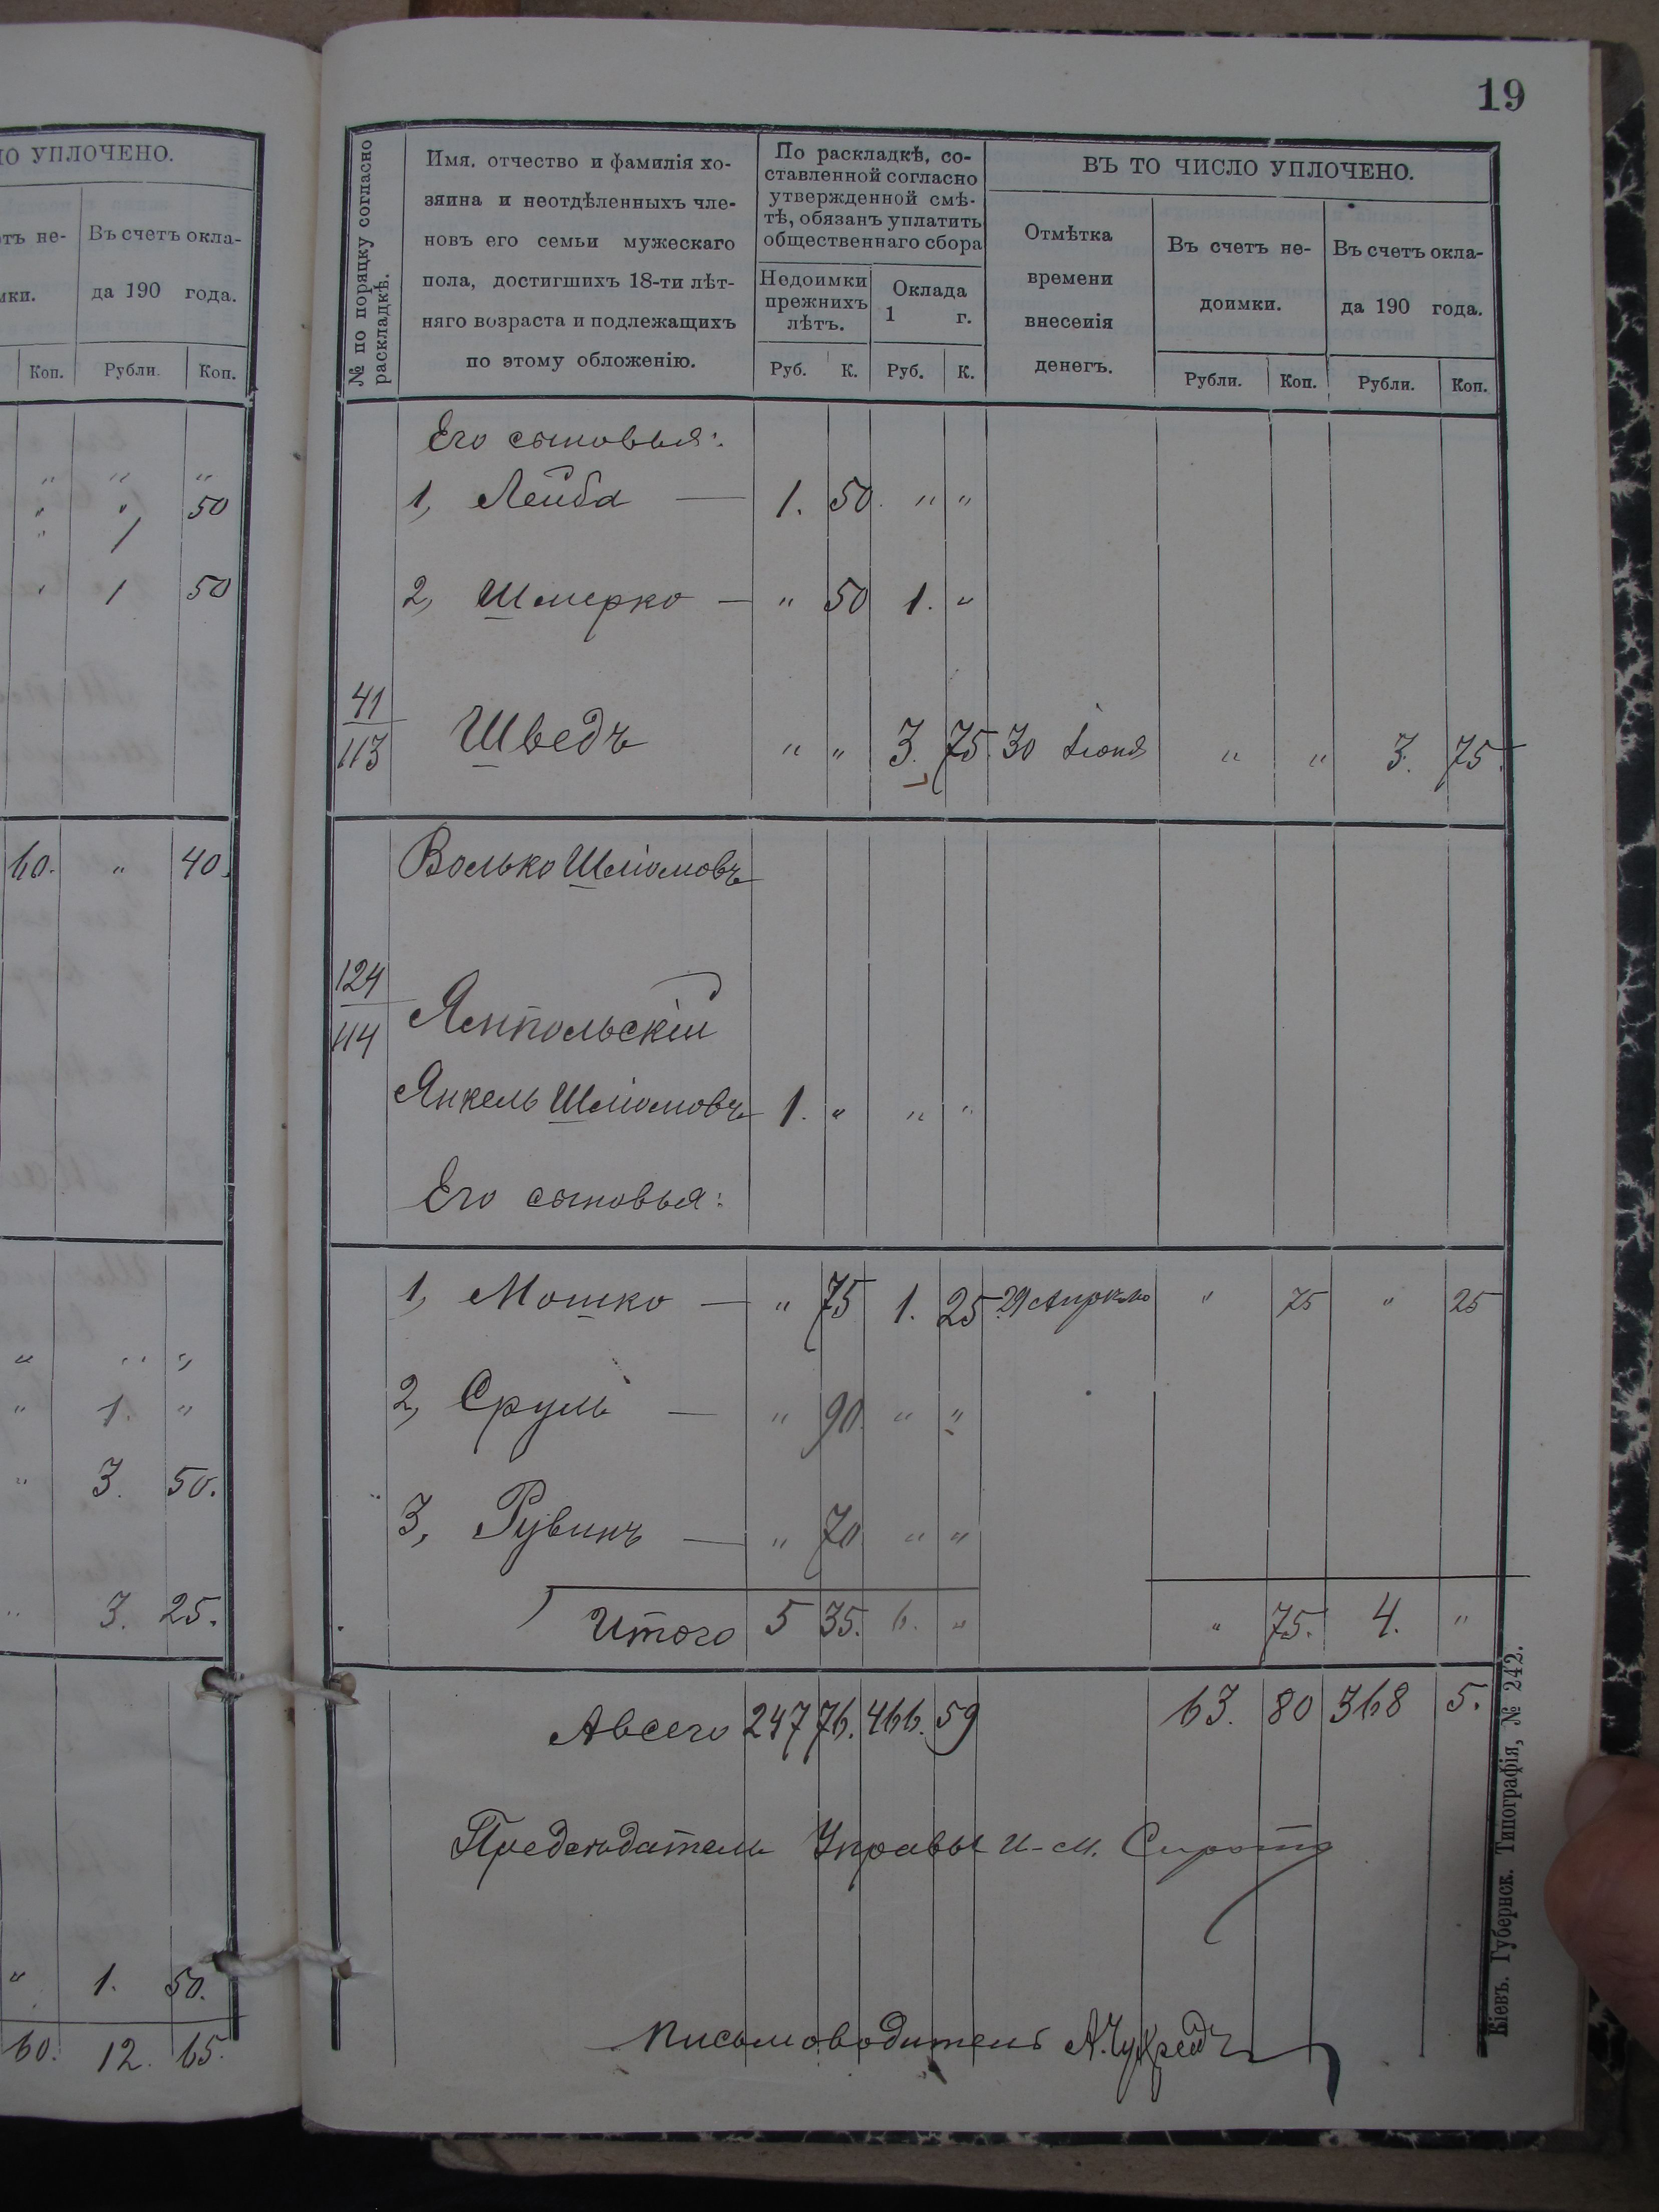 ІО УПЛОЧЕНО.
етъ не-
Въ счетъ окла-
мки.
да 190 года.
Коп.
Рубли.
Коп.
" " "
" " 50
" 1
" 1 50
60. " 40.
" " "
" 1. "
" 3. 50.
" 3. 25.
" 1. 50.
60. 12. 65.
19
№ по порядку согласно
раскладкѣ.
Имя, отчество и фамилія хо-
зяина и неотдѣленныхъ чле-
новъ его семьи мужескаго
пола, достигшихъ 18-ти лѣт-
няго возраста и подлежащихъ
по этому обложенію.
По раскладкѣ, со-
ставленной согласно
утвержденной смѣ-
тѣ, обязанъ уплатить
общественнаго сбора
Недоимки
прежнихъ
лѣтъ.
Оклада
1 г.
Руб. К. Руб. К.
ВЪ ТО ЧИСЛО УПЛОЧЕНО.
Отмѣтка
времени
внесенія
денегъ.
Въ счетъ не-
доимки.
Въ счетъ окла-
да 190 года.
Рубли. Коп. Рубли. Коп.
Его сыновья:
1, Лейба — 1. 50. " "
2, Шмерко — " 50 1. "
41
113
Шведъ " " 3. 75. 30 Іюня " " 3. 75.
Волько Шліомовъ
124
114
Ямпольскій
Янкель Шліомовъ 1. " " "
Его сыновья:
1, Мошко — " 75 1. 25 29 Апрѣля " 75 " 25
2, Сруль — " 90. " "
3, Рувинъ — " 70. " "
Итого 5 35. 6. " " 75. 4. "
Авсего 247 76. 466. 59 63. 80 368 5.
Предсѣдатель Управы И-М. Сирота
Письмоводитель
Кіевъ. Губернск. Типографія, № 242.